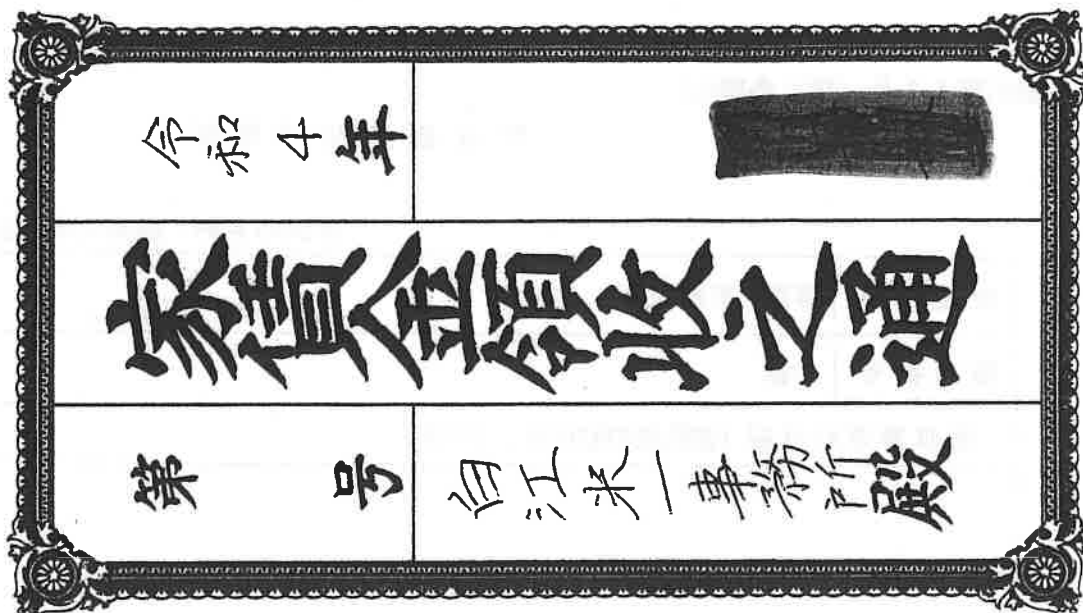 令和4年
家賃金領收之通
第 号
白江米一事務所殿